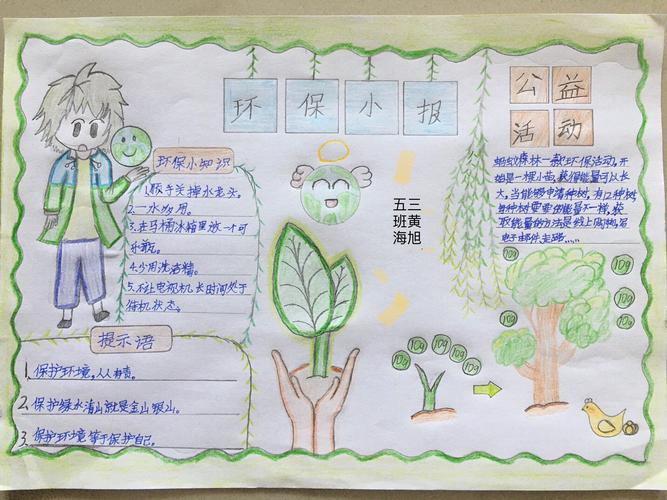 环保小报
公益
活动
环保小知识
1.随手关掉水龙头。
2.一水多用。
3.在马桶水箱里放一个可
乐瓶。
4.少用洗洁精。
5.不让电视机长时间处于
待机状态。
提示语
1、保护环境,人人有责。
2、保护绿水清山就是金山银山。
3、保护环境等于保护自己。
五三
班黄
海旭
蚂蚁森林一款环保活动,开
始是一棵小苗,获得能量可以长
大,当能够申请种树,有12种树
每种树要要的能量不一样,获
取能量的方法是线上
电子邮件走路……
10g
10g
10g
10g
10g
10g
10g
10g
10g
10g